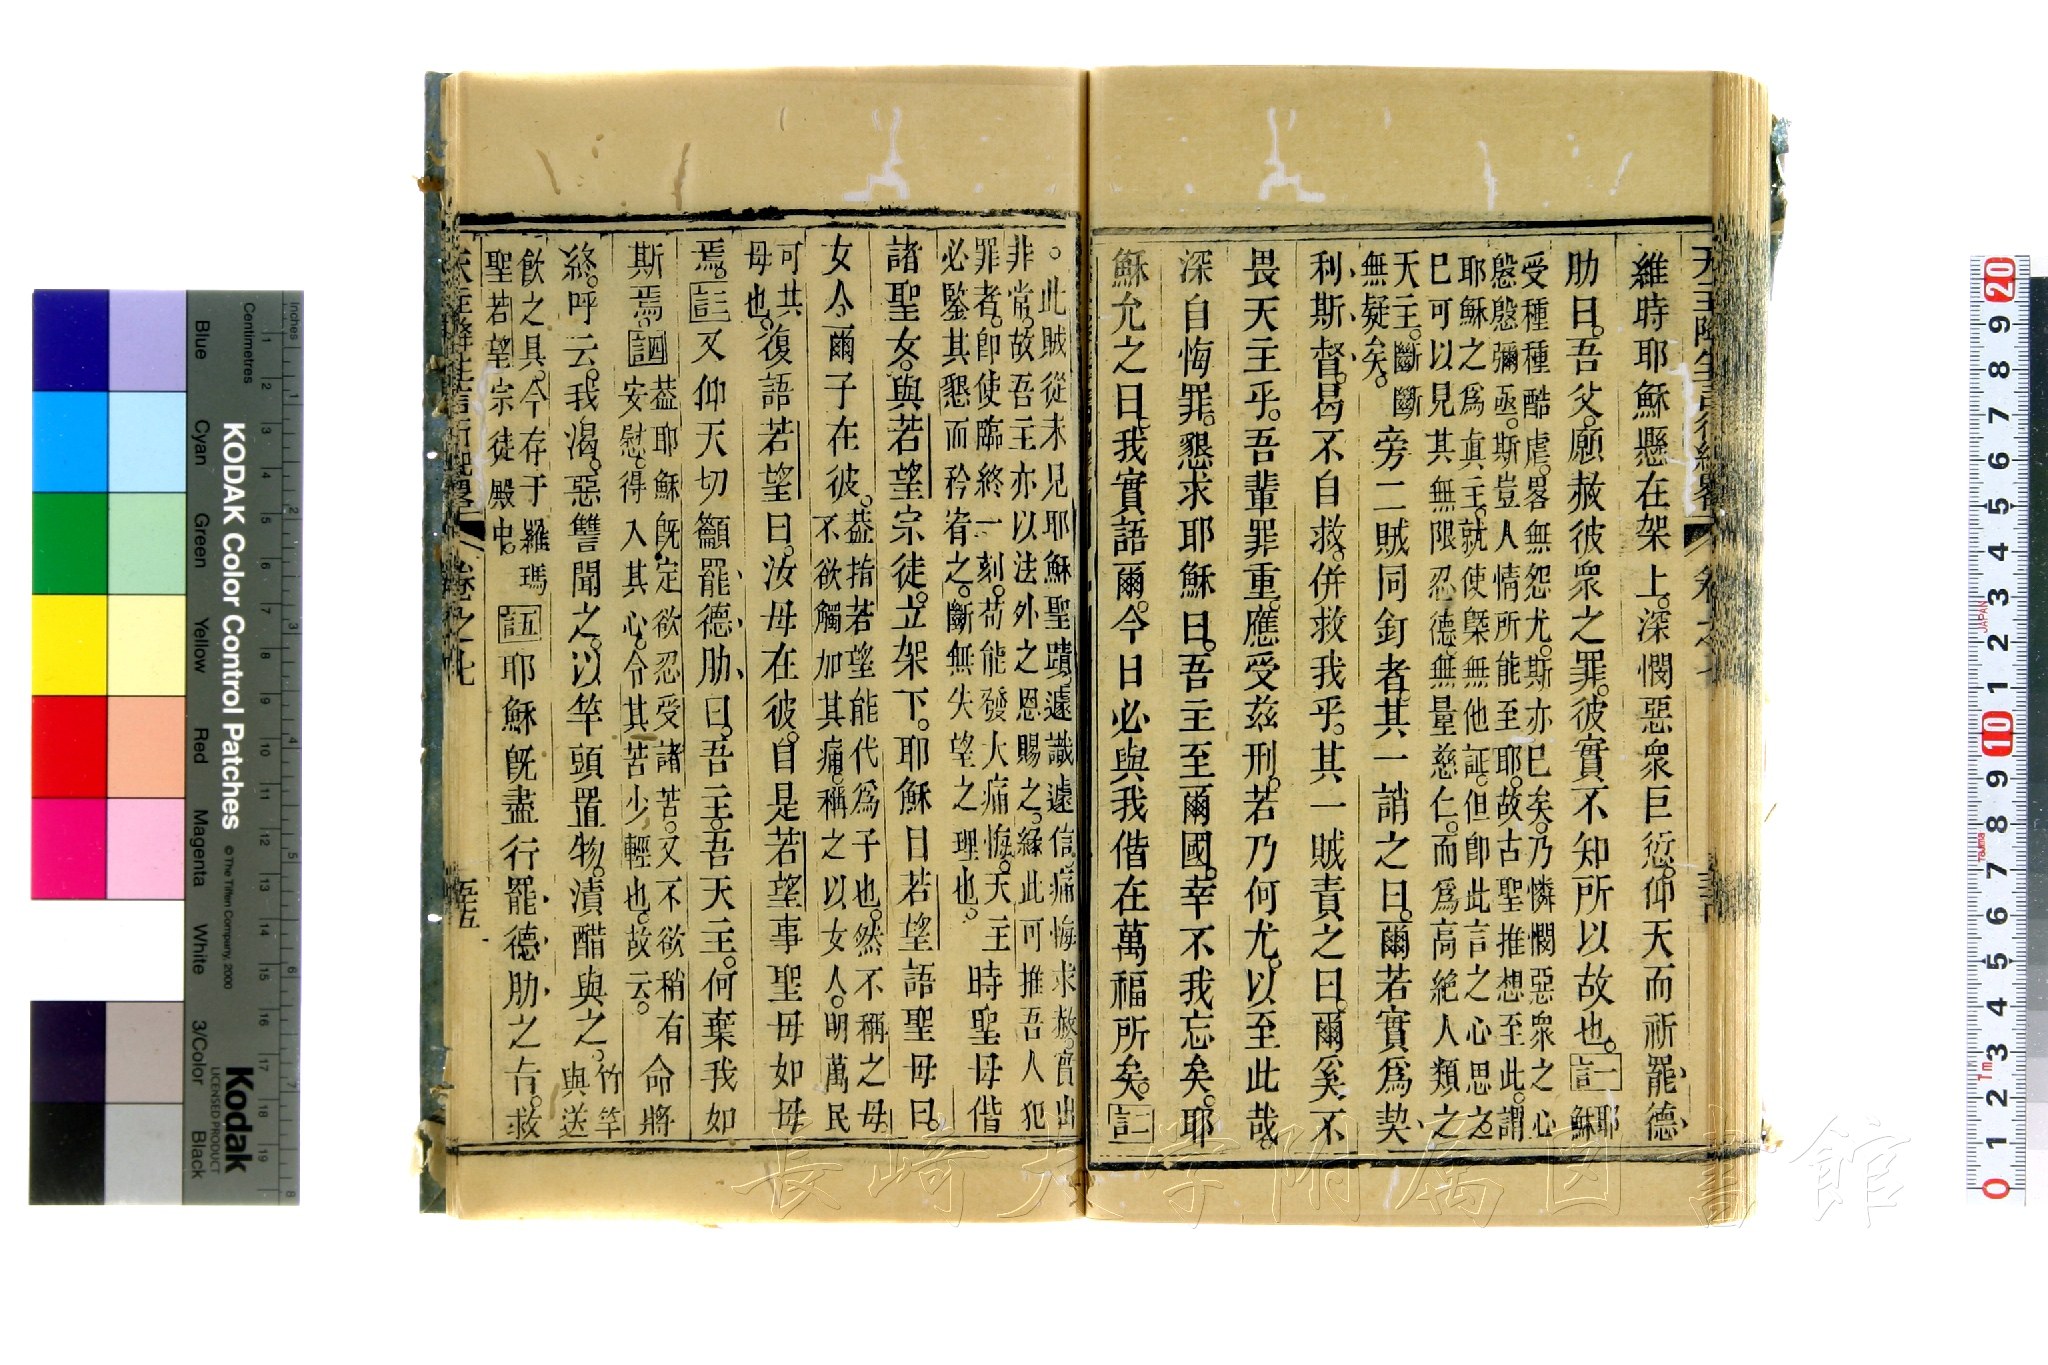 維時耶穌懸在架上。深憫惡衆巨愆。仰天而祈罷德
肋曰。吾父。願赦彼衆之罪。彼實不知所以故也。註一耶穌
受種種酷虐。畧無怨尤。斯亦已矣。乃憐憫惡衆之心
慇慇彌亟。斯豈人情所能至耶。故古聖推想至此。謂
耶穌之爲眞主。就使槩無他証。但卽此言之心思之
已可以見其無限忍德。無量慈仁。而爲高絶人類之
天主。斷斷
無疑矣。
旁二賊同釘者。其一誚之曰。爾若實爲契
利斯督。曷不自救。併救我乎。其一賊責之曰。爾奚不
畏天主乎。吾輩罪重。應受玆刑。若乃何尤。以至此哉。
深自悔罪。懇求耶穌曰。吾主至爾國。幸不我忘矣。耶
穌允之曰。我實語爾。今日必與我偕在萬福所矣。註二
。此賊從未見耶穌聖蹟。遽識遽信痛悔求赦。實出
非常。故吾主亦以法外之恩賜之。緣此可推吾人犯
罪者。卽使臨終一刻。苟能發大痛悔。天主
必鑒其懇而矜宥之。斷無失望之理也。
時聖母偕
諸聖女。與若望宗徒。立架下。耶穌目若望語聖母曰。
女人。爾子在彼。
蓋指若望能代爲子也。然不稱之母。
不欲觸加其痛。稱之以女人。明萬民
可共
母也。
復語若望曰。汝母在彼。自是若望事聖母如母
焉。註三又仰天切籲罷德肋曰。吾主。吾天主。何棄我如
斯焉。註四
蓋耶穌旣定欲忍受諸苦。又不欲稍有
安慰。得入其心。令其苦少輕也。故云。
命將
終。呼云。我渴。惡讐聞之。以竿頭置物。漬醋與之。
竹竿
與送
飲之具。今存于羅瑪
聖若望宗徒殿中。
註五耶穌旣盡行罷德肋之旨。救
天主降生言行紀畧 卷之七
KODAK Color Control Patches
© The Tiffen Company, 2000
Kodak
LICENSED PRODUCT
Inches
Centimetres
Blue
Cyan
Green
Yellow
Red
Magenta
White
3/Color
Black
JAPAN
長崎大学附属図書館